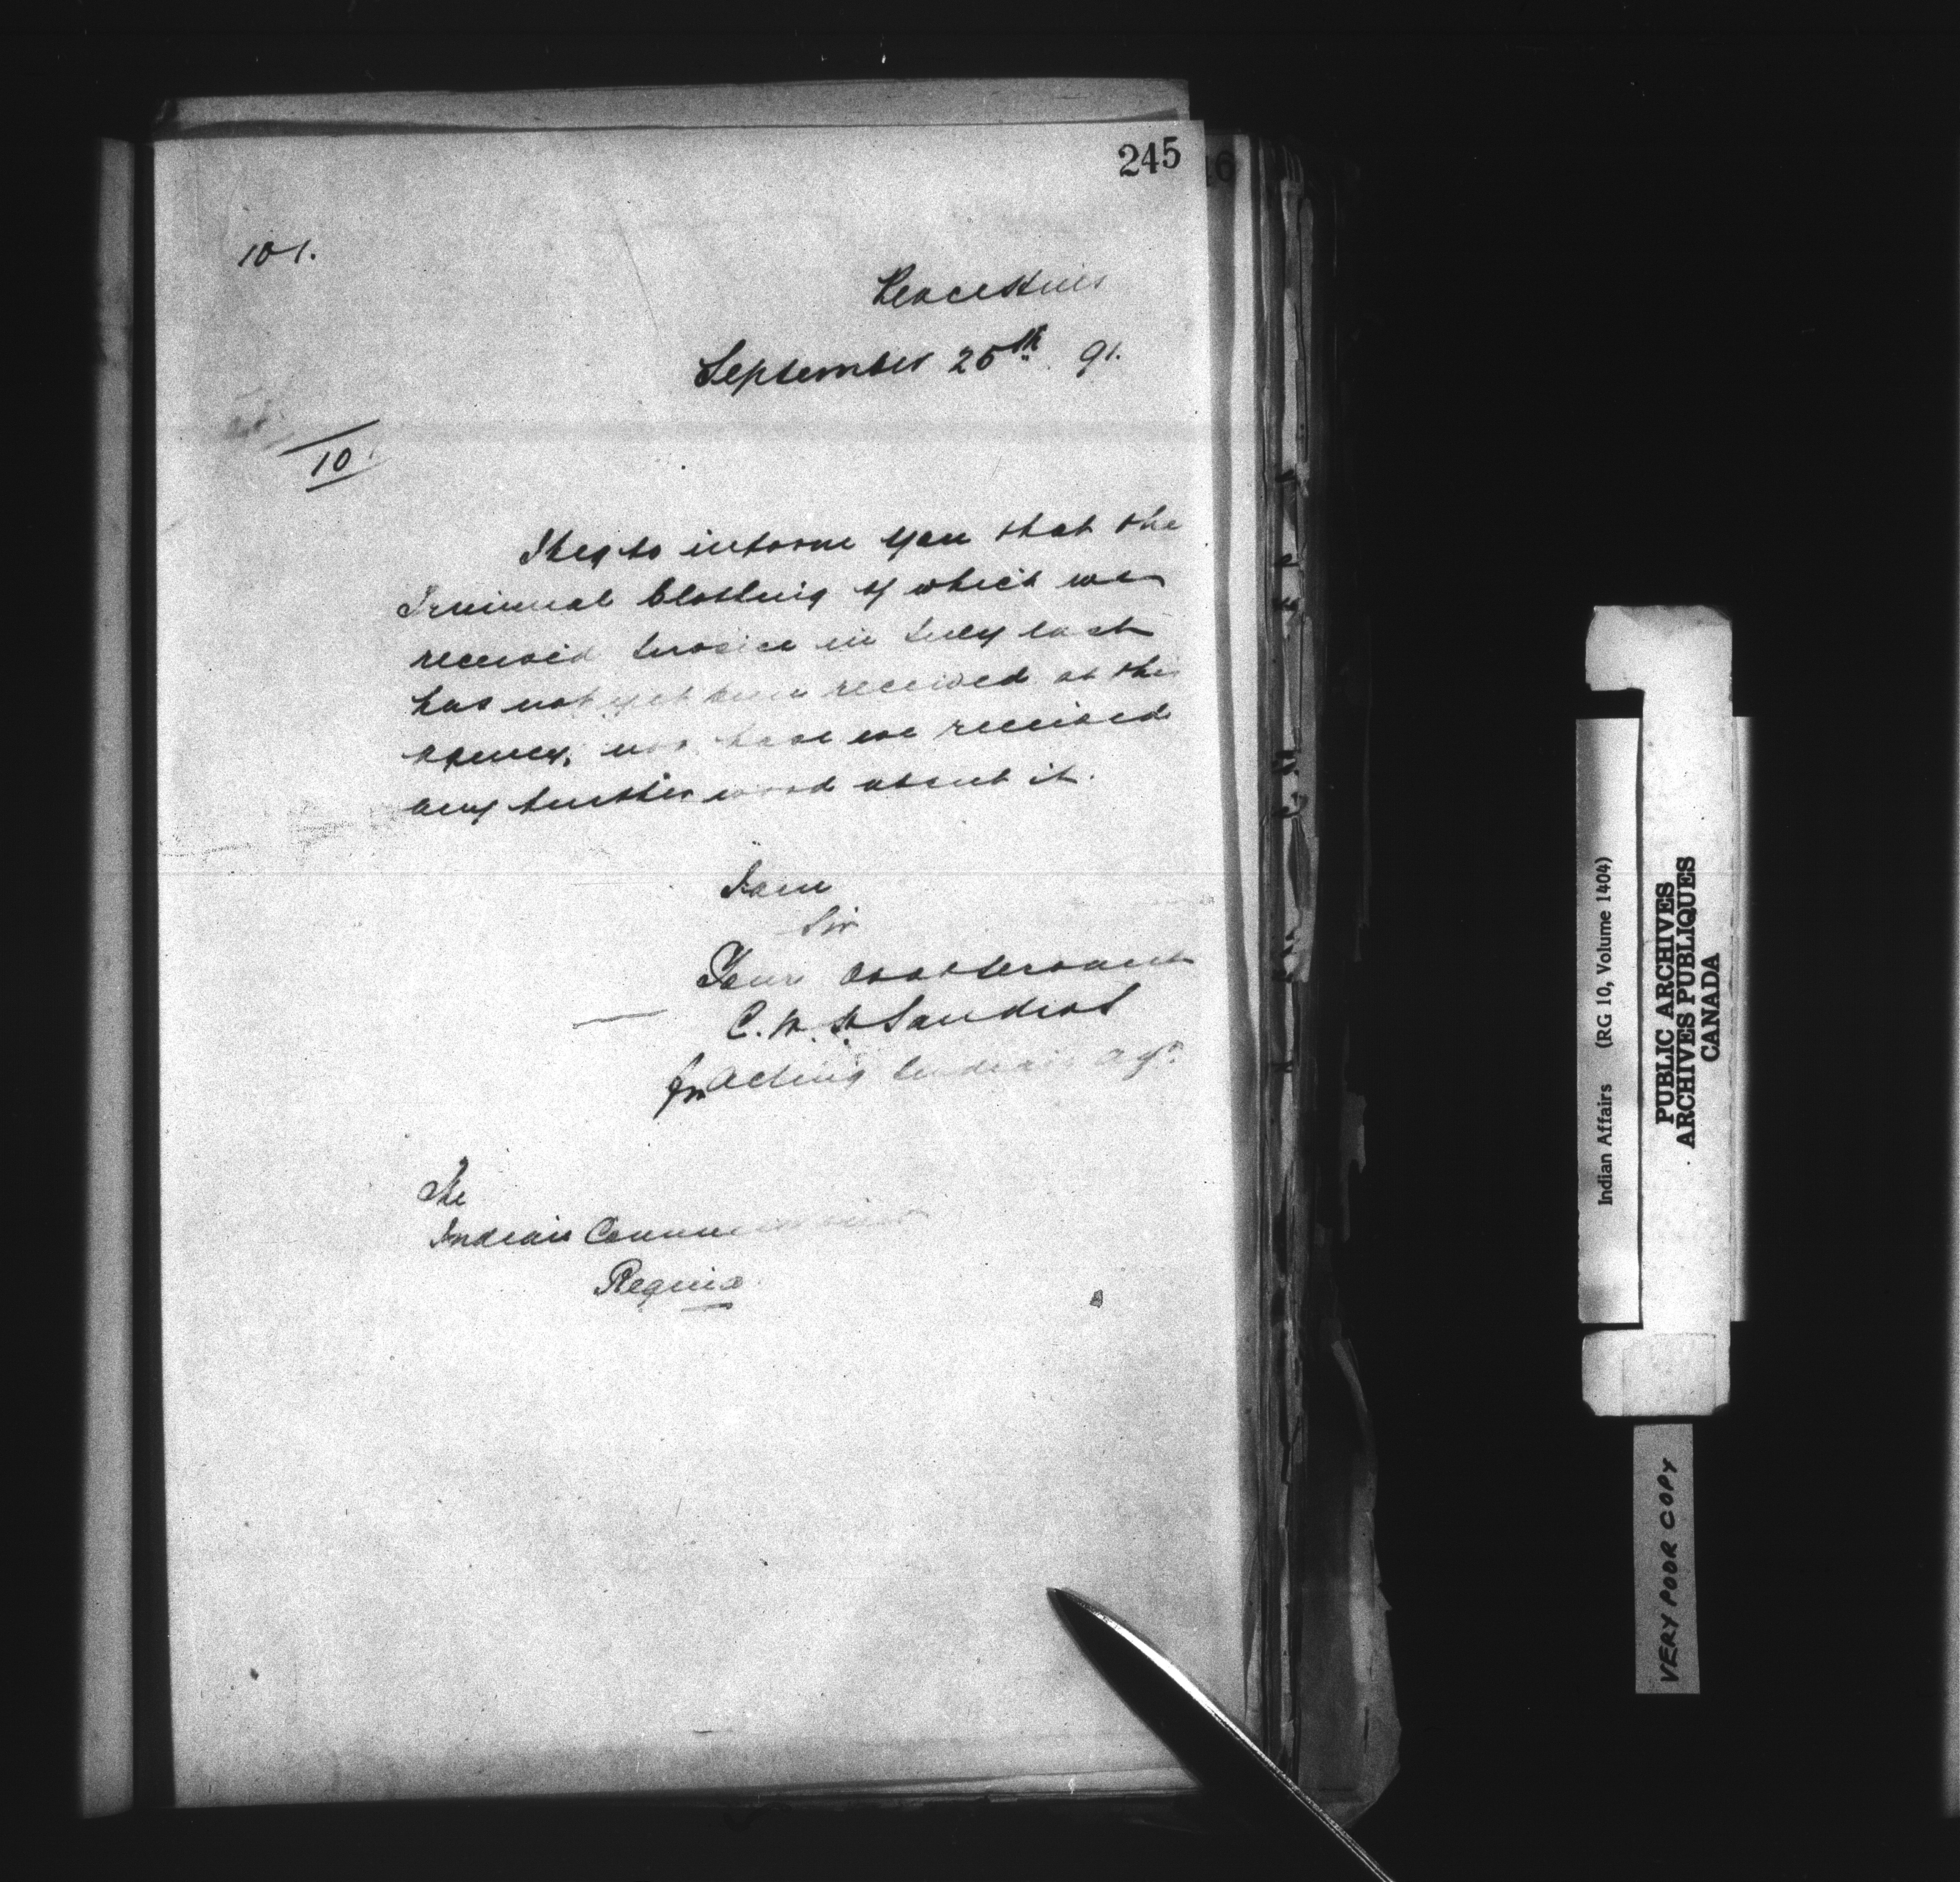 245
46
101.
Peace Hills
September 25th 91.
10
I beg to inform you that the
Triennial Clothing of which we
received Invoice in July last
has not yet been received at this
Agency, nor have we received
any further word about it.
I am
Sir
Your Obdt Servant
C. W. H. Sanders
for Acting Indian Agt.
The
Indian Commissioner
Regina
Indian Affairs (RG 10, Volume 1404)
PUBLIC ARCHIVES
ARCHIVES PUBLIQUES
CANADA
VERY POOR COPY